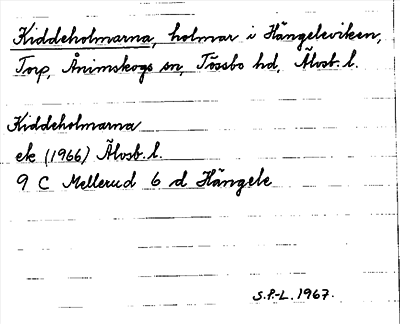 Kiddeholmarna, holmar i Hängeleviken,
Torp, Ånimskogs sn, Tössbo hd, Älvsb. l.
Kiddeholmarna
ek (1966) Älvsb. l.
9 C Mellerud 6 d Hängele
S.P.-L. 1967.